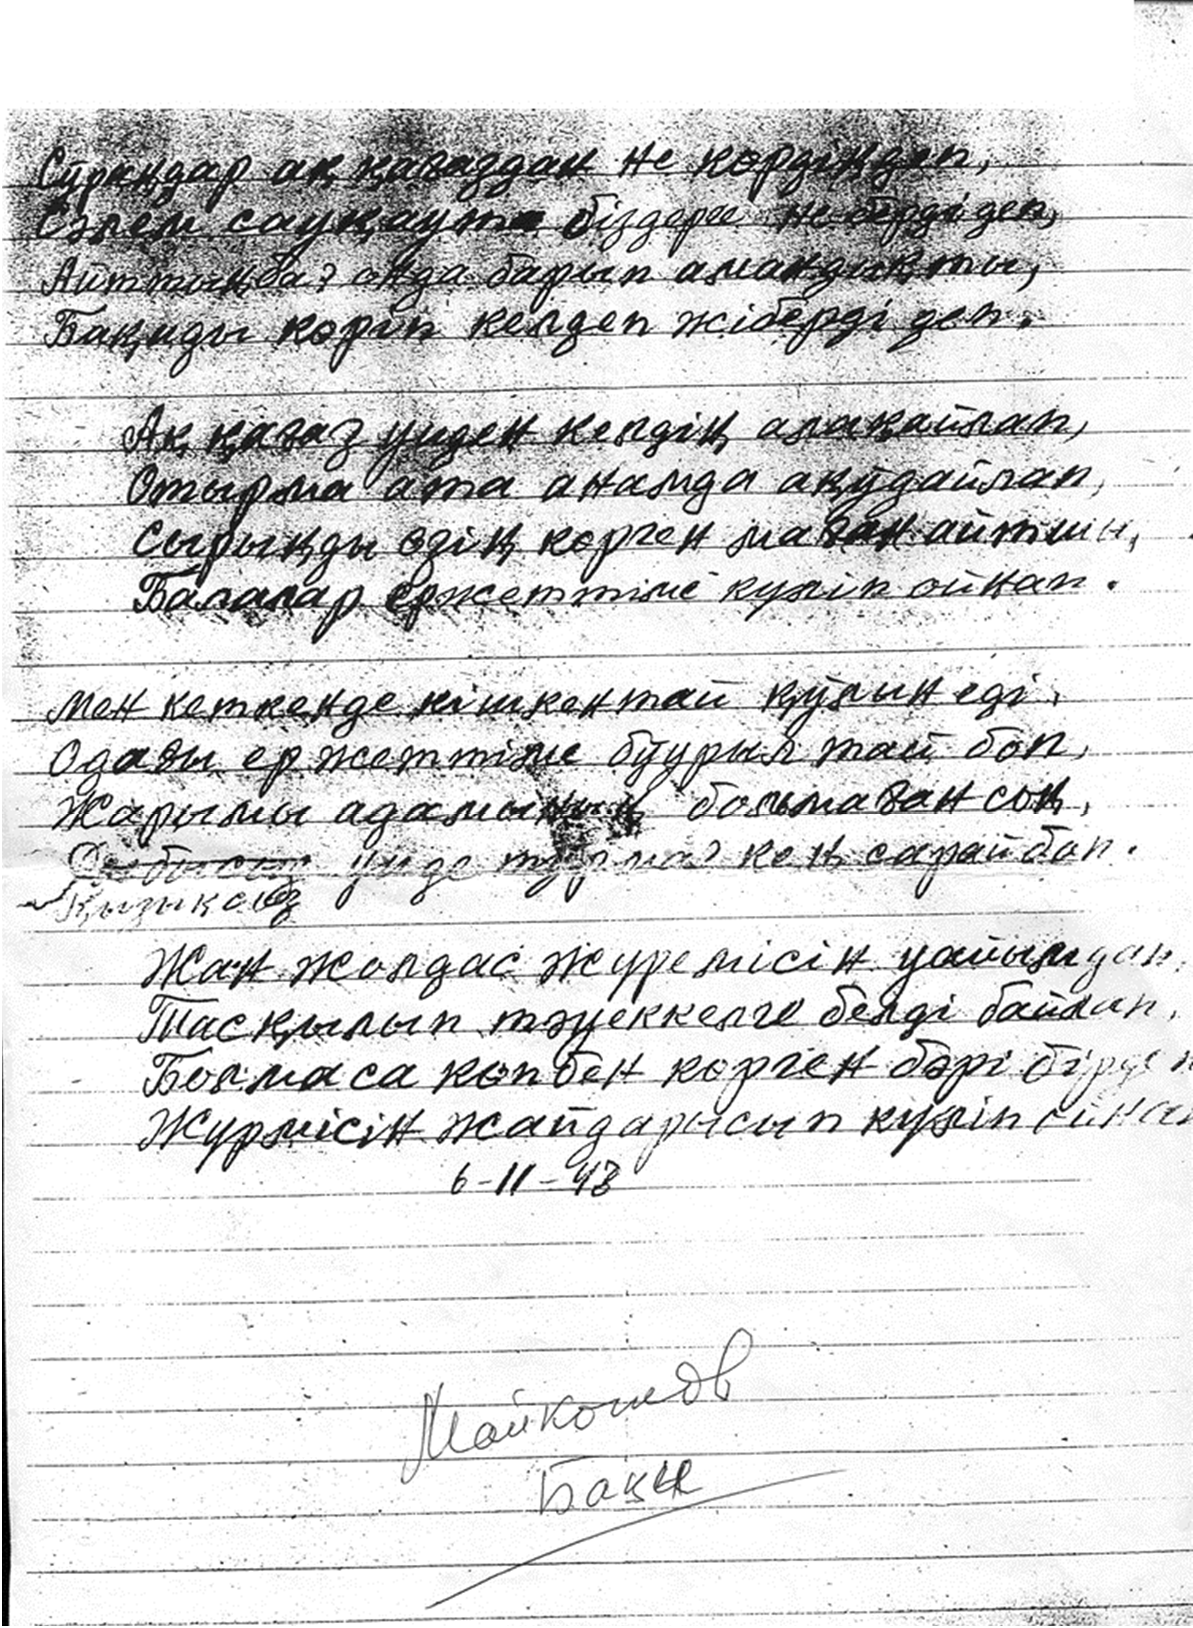 Сұраңдар ақ қағаздан не көрдің деп,
Сәлем сауқаутa біздерге не берді деп,
Айттыңба? онда барып амандықты,
Бақиды көріп келдеп жіберді деп.
Ақ қағаз үйден келдің алақайлап,
Отырма ата анамда ақұдайлап,
Сырыңды өзің көрген маған айтшы,
Балалар ержеттіме күліп ойнап.
Мен кеткенде кішкентай құлын еді,
Одағы ер жеттіме буурыл тай боп,
Жарымы адамының болмаған соң,
үйде тұрма? кең сарай боп.
Қызықсыз
Жан жолдас жүремісің уайымдап,
Тасқылып тәуеккелге белді байлап,
Болмаса көпбен көрген бәрі бірден
Жүрмісің жайдарысып күліп ойнап
6-11-43
Майкотов
Бақи